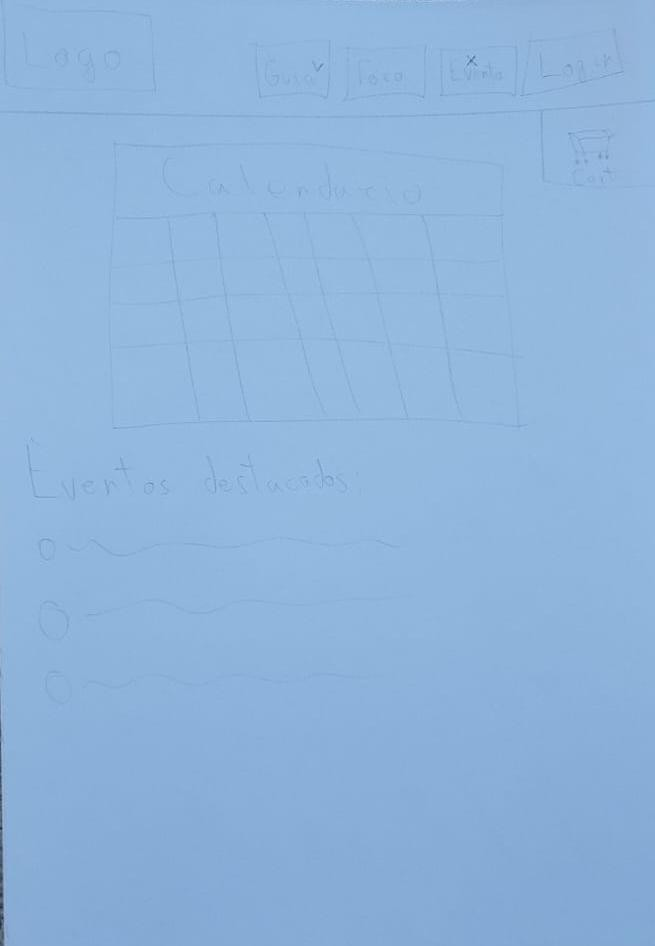 Logo
Guia Foro Evento Login
Cart
Calendario
Eventos destacados: